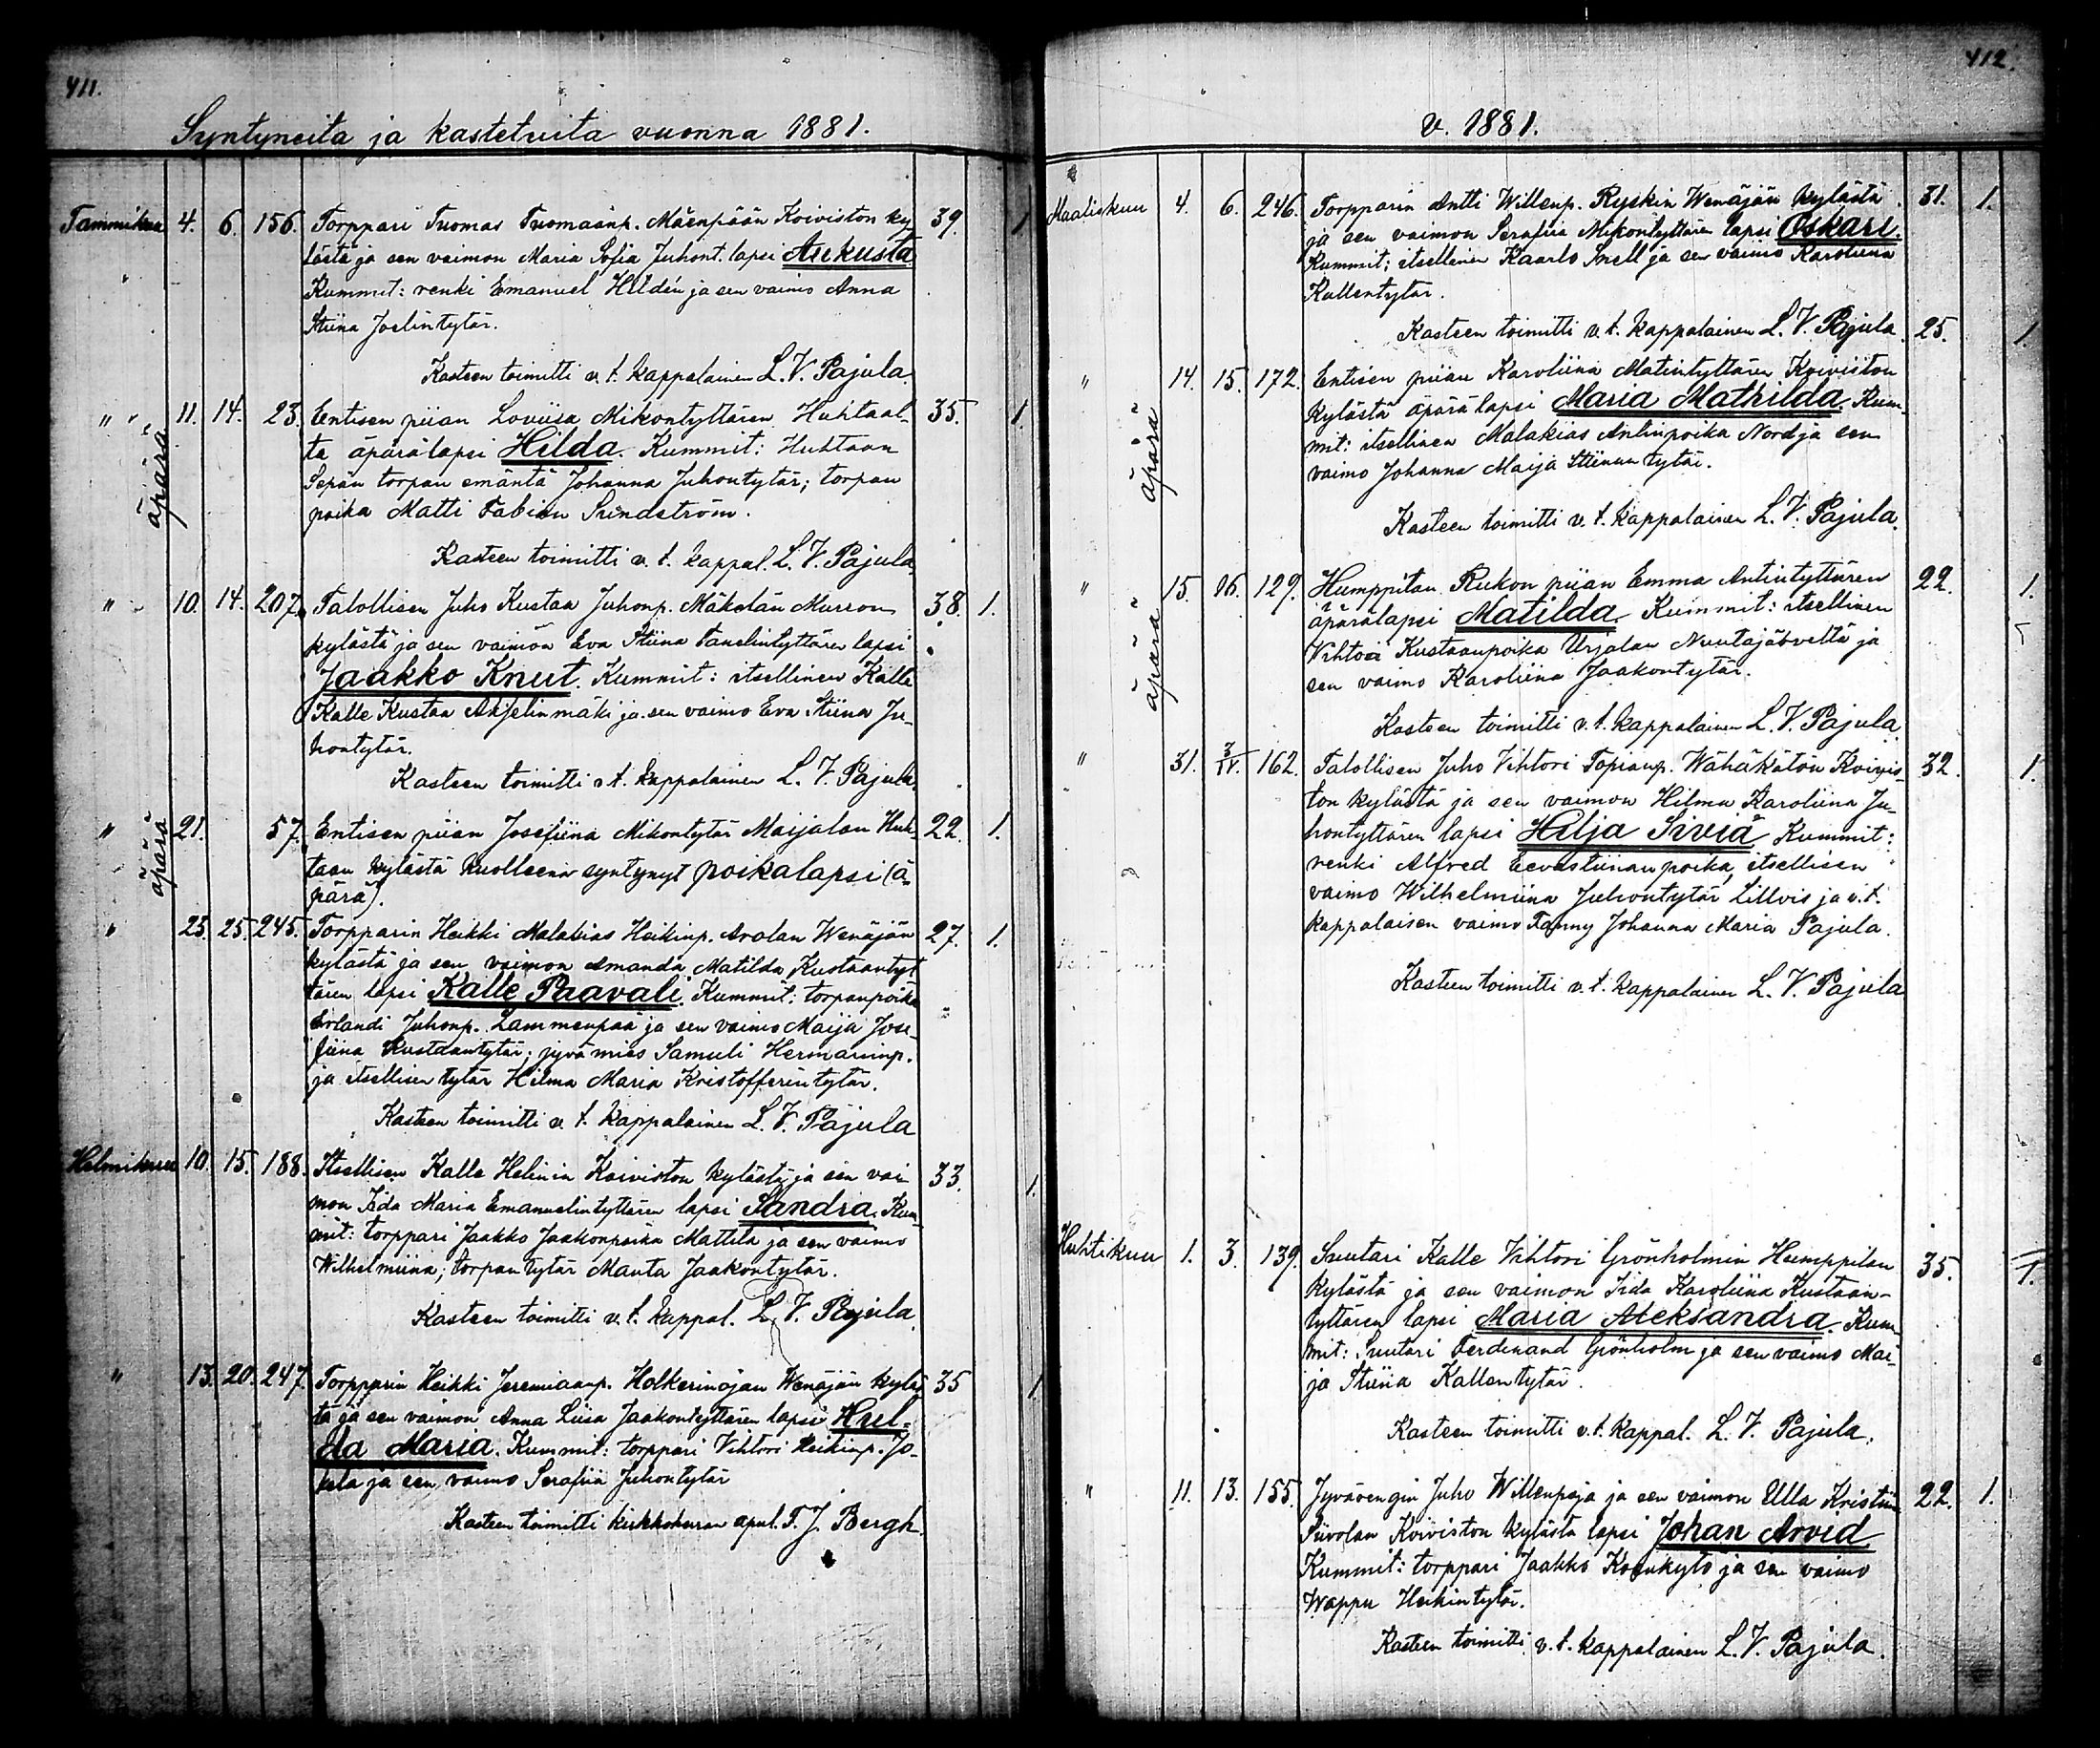 411.
Syntyneitä ja kastetuita vuonna 1881.
Tammikuu 4. 6. 156. Torppari Tuomas Tuomaanp. Mäenpään Koiviston ky- 39. 1
lästä ja sen vaimon Maria Sofia Juhont. lapsi Aukusta.
Kummit: renki Emanuel Hildén ja sen vaimo Anna
Stiina Joelintytär.
Kasteen toimitti v. t. kappalainen L. V. Pajula.
" 11. 14. 23. Entisen piian Loviisa Mikontyttären Huhtaal- 35. 1.
äpärä
ta äpärälapsi Hilda. Kummit: Huhtaan
Sepän torpan emäntä Johanna Juhontytär; torpan
poika Matti Fabian Sundström.
Kasteen toimitti v. t. kappal. L. V. Pajula.
" 10. 14. 207. Talollisen Juho Kustaa Juhonp. Mäkolan Murron 38. 1.
kylästä ja sen vaimon Eva Stiina Tanelintyttären lapsi
Jaakko Knut. Kummit: itsellinen Kalle
Kalle Kustaa Ahjelinmäki ja sen vaimo Eva Stiina Ju-
hontytär.
Kasteen toimitti v. t. kappalainen L. V. Pajula.
" 21. 57. Entisen piian Josefiina Mikontytär Maijalan Huh- 22. 1.
äpärä
taan kylästä kuolleena syntynyt poikalapsi (ä-
pärä).
" 23. 25. 245. Torpparin Heikki Malakias Heikinp. Arolan Wenäjän 27. 1.
kylästä ja sen vaimon Amanda Matilda Kustaantyt
tären lapsi Kalle Paavali. Kummit: torpanpoika
Erlandi Juhonp. Lammenpää ja sen vaimo Maija Jose-
fiina Kustaantytär; jyvämies Samuli Hermaninp.
ja itsellisen tytär Hilma Maria Kristofferintytär.
Kasteen toimitti v. t. kappalainen L. V. Pajula
Helmikuu 10. 15. 188. Itsellisen Kalle Helinin Koiviston kylästä ja sen vai 33. 1.
mon Iida Maria Emanuelintyttären lapsi Sandra. Kum-
mit: torppari Jaakko Jaakonpoika Mattila ja sen vaimo
Wilhelmiina; torpan tytär Manta Jaakontytär.
Kasteen toimitti v. t. kappal. L. V. Pajula.
" 13. 20. 247. Torpparin Heikki Jeremiaanp. Holkerinojan Wenäjän kyläs 35 1
tä ja sen vaimon Anna Liisa Jaakontyttären lapsi Hul-
da Maria. Kummit: torppari Vihtori Heikinp. Jo-
kela ja sen vaimo Serafiia Juhontytär
Kasteen toimitti kirkkoherran apul. T. J. Bergh.
412.
v. 1881.
Maaliskuu 4. 6. 246. Torpparin Antti Willenp. Ryskin Wenäjän kylästä 31. 1.
ja sen vaimon Serafiia Mikontyttären lapsi Oskari.
Kummit: itsellinen Kaarlo Snell ja sen vaimo Karoliina
Kallentytär.
Kasteen toimitti v. t. kappalainen L. V. Pajula.
" 14. 15. 172. Entisen piian Karoliina Matintyttären Koiviston 25. 1
äpärä
kylästä äpärälapsi Maria Mathilda. Kum-
mit: itsellinen Malakias Antinpoika Nord ja sen
vaimo Johanna Maija Stiinan tytär.
Kasteen toimitti v. t. kappalainen L. V. Pajula.
" 15. 16. 129. Humppilan Rukon piian Emma Antintyttären 22. 1.
äpärä
äpärälapsi Matilda. Kummit: itsellinen
Vihtori Kustaanpoika Urjalan Nuutajärveltä ja
sen vaimo Karoliina Jaakontytär.
Kasteen toimitti v. t. kappalainen L. V. Pajula
" 31. 3/IV. 162. Talollisen Juho Vihtori Topianp. Wähäkätön Koivis- 32. 1.
ton kylästä ja sen vaimon Hilma Karoliina Ju-
hontyttären lapsi Hilja Siviä. Kummit:
renki Alfred Eevastiinanpoika, itsellisen
vaimo Wilhelmiina Juhontytär Lillvis ja v. t.
kappalaisen vaimo Fanny Johanna Maria Pajula.
Kasteen toimitti v. t. kappalainen L. V. Pajula
Huhtikuu 1. 3. 139. Suutari Kalle Vihtori Grönholmin Humppilan 35. 1.
kylästä ja sen vaimon Iida Karoliina Kustaan-
tyttären lapsi Maria Aleksandra. Kum-
mit: Suutari Ferdinand Grönholm ja sen vaimo Mai-
ja Stiina Kallentytär.
Kasteen toimitti v. t. kappal. L. V. Pajula.
" 11. 13. 155. Jyvärengin Juho Willenpoja ja sen vaimon Ulla Kristiin 22. 1.
Siivolan Koiviston kylästä lapsi Johan Arvid
Kummit: torppari Jaakko Korukyto ja sen vaimo
Wappu Heikintytär.
Kasteen toimitti v. t. kappalainen L. V. Pajula.